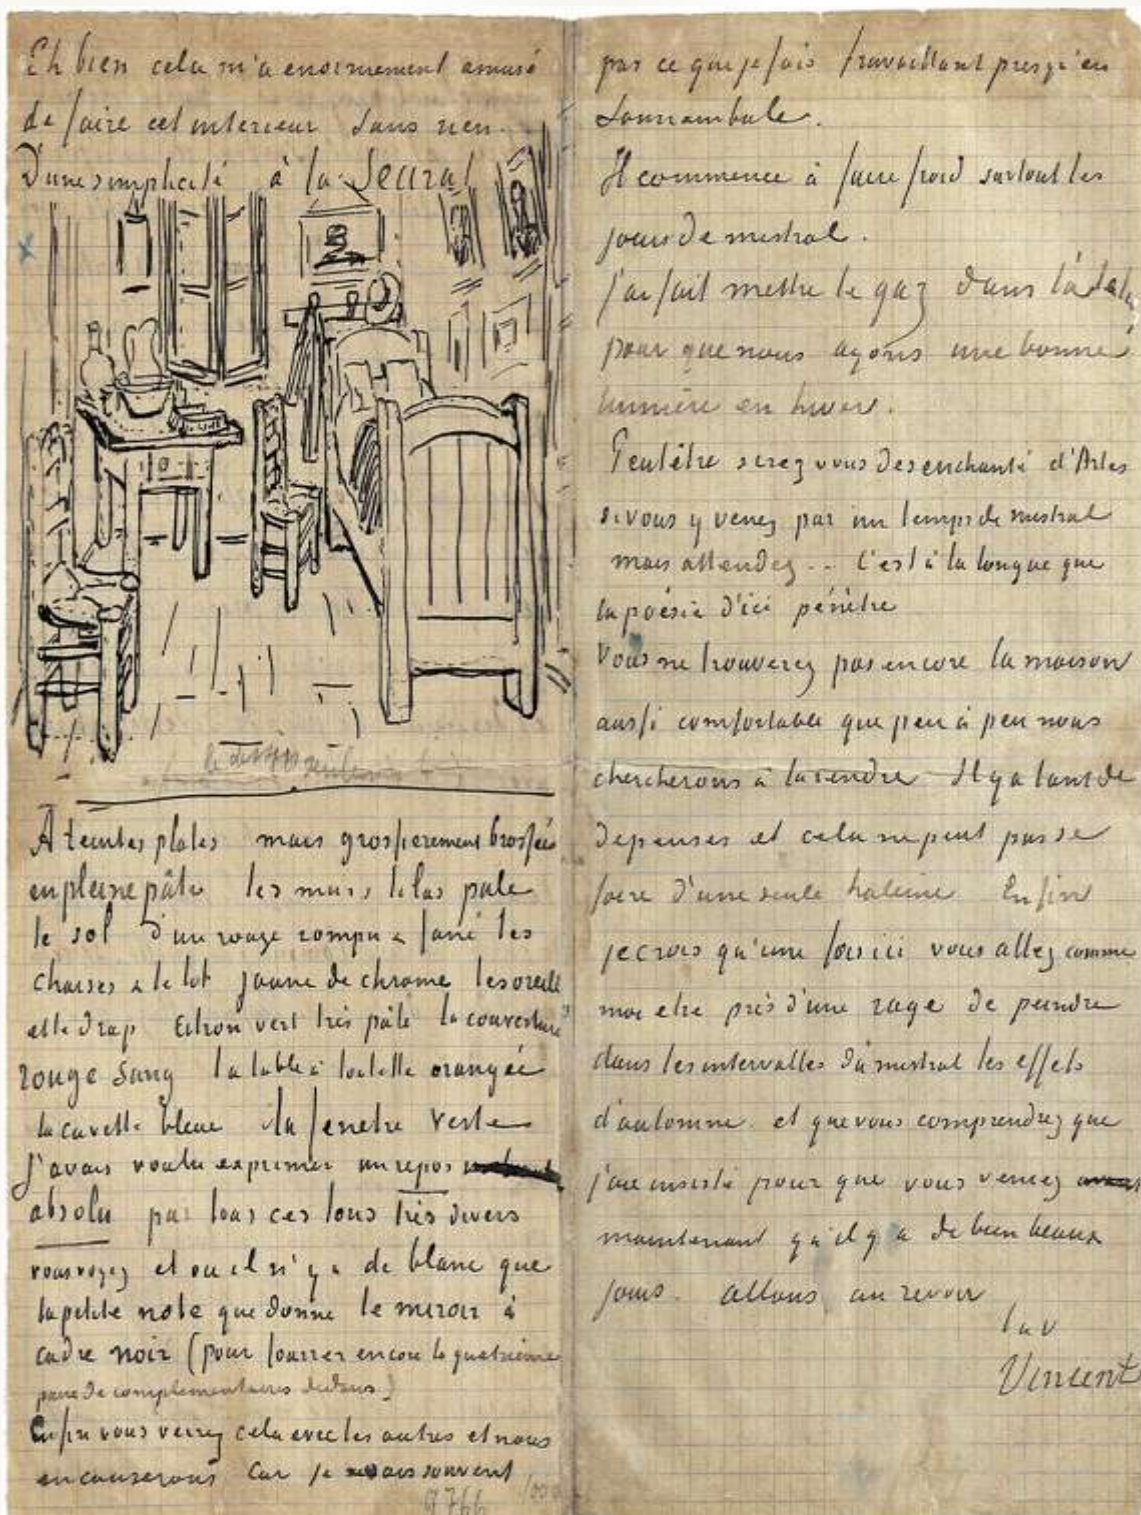 Eh bien cela m'a enormement amusé
de faire cet interieur sans rien.
D'une simplicité à la Seurat
A teintes plates mais grossierement brossées
en pleine pâte les murs lilas pale
le sol d'un rouge rompu & fané les
chaises & le lit jaune de chrome les oreillers
et le drap citron vert très pâle la couverture
rouge sang la table à toilette orangée
la cuvette bleue la fenetre verte
J'avais voulu exprimer un repos
absolu par tous ces tons très divers
vous voyez et ou il n'y a de blanc que
la petite note que donne le miroir à
cadre noir (pour fourrer encore la quatrième
paire de complementaires dedans.)
Enfin vous verrez cela avec les autres et nous
en causerons car je ne sais souvent
9766
pas ce que je fais travaillant presqu'en
somnambule.
Il commence à faire froid surtout les
jours de mistral.
J'ai fait mettre le gaz dans l'atelier
pour que nous ayons une bonne
lumière en hiver.
Peutêtre serez vous desenchanté d'Arles
si vous y venez par un temps de mistral
mais attendez... C'est à la longue que
la poésie d'ici pénètre
Vous ne trouverez pas encore la maison
aussi comfortable que peu à peu nous
chercherons à la rendre Il y a tant de
depenses et cela ne peut pas se
faire d'une seule haleine Enfin
je crois qu'une fois ici vous allez comme
moi etre pris d'une rage de peindre
dans les intervalles du mistral les effets
d'automne. et que vous comprendrez que
j'aie insisté pour que vous veniez
maintenant qu'il y a de bien beaux
jours. allons au revoir
t. à v
Vincent